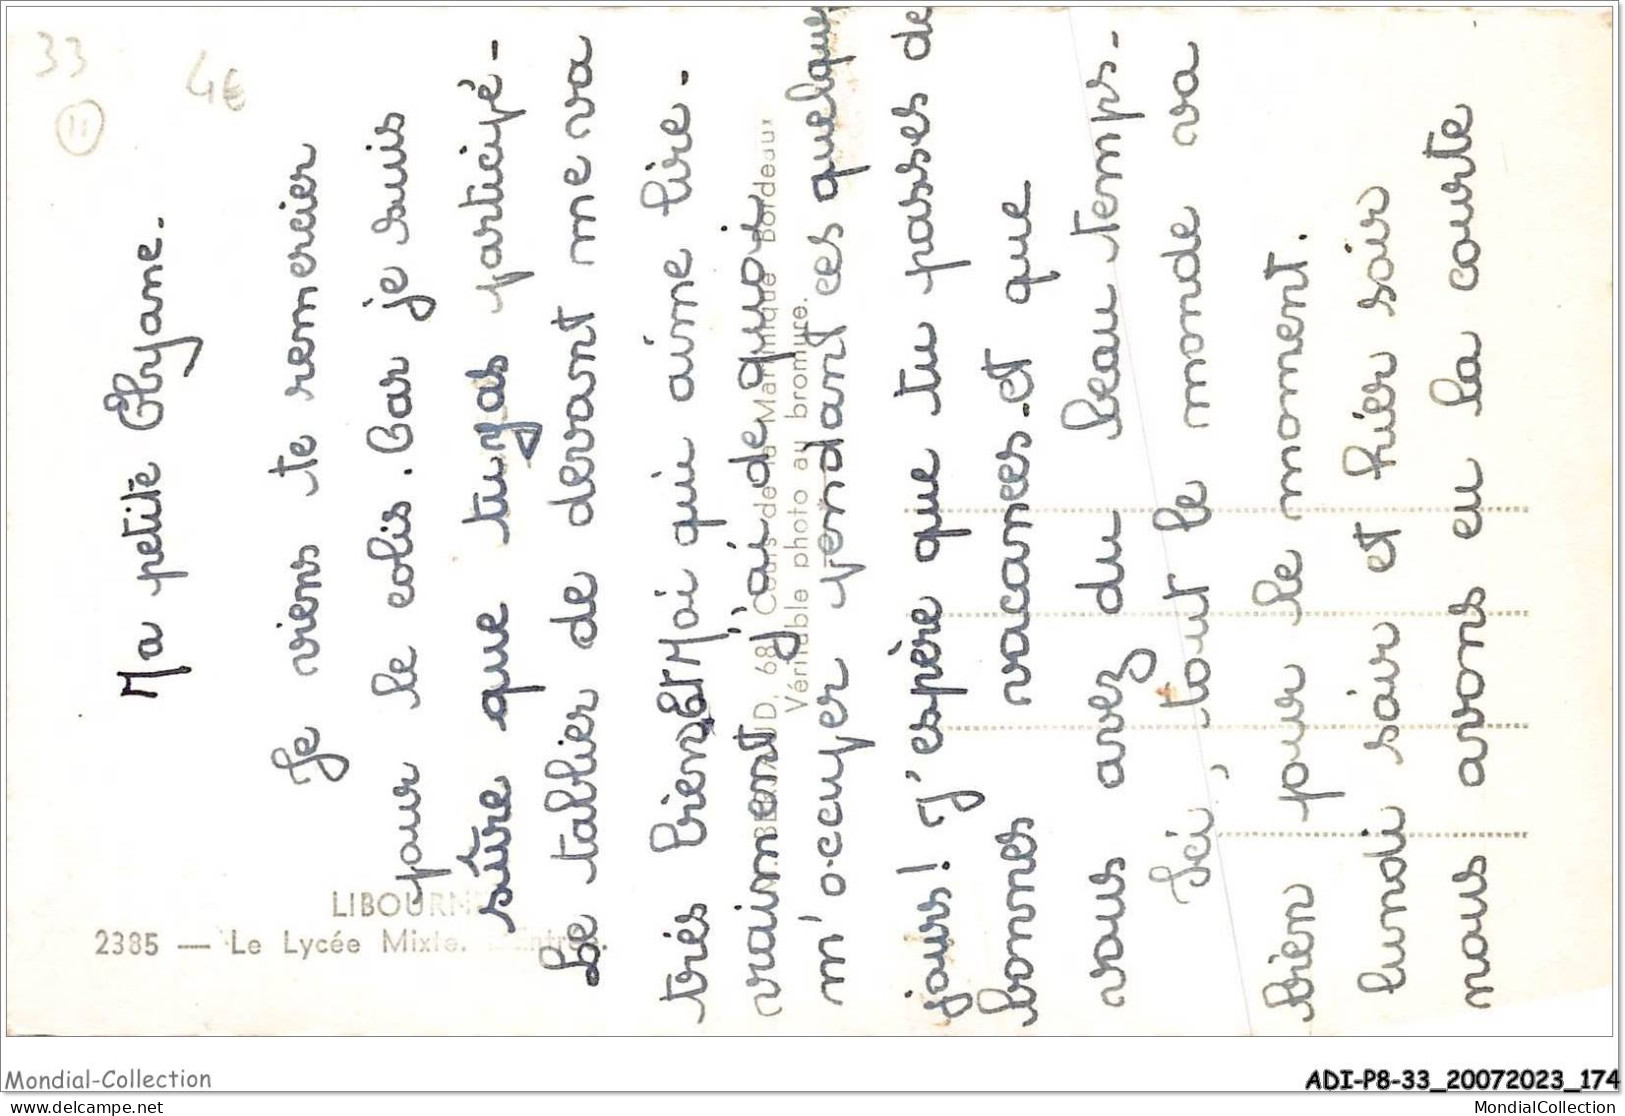 33
4€
11
Ma petite Obyane.
Je viens te remercier
pour le colis. Car je suis
sûre que tu y as participé-
Le tablier de devant me va
très bien et Moi qui aime lire.
vraiment, j'ai de quoi
m'occuper pendant ces quelques
jours! J'espère que tu passes de
bonnes vacances. et que
vous avez du beau temps.
Ici, tout le monde va
bien pour le moment.
lundi soir et hier soir
nous avons eu la courte
LIBOURNE
2385 — Le Lycée Mixte. Entrée.
68, Cours de la Martinique Bordeaux
Véritable photo au bromure.
Mondial-Collection
ADI-P8-33_20072023_174
MondialCollection.fr
MondialCollection